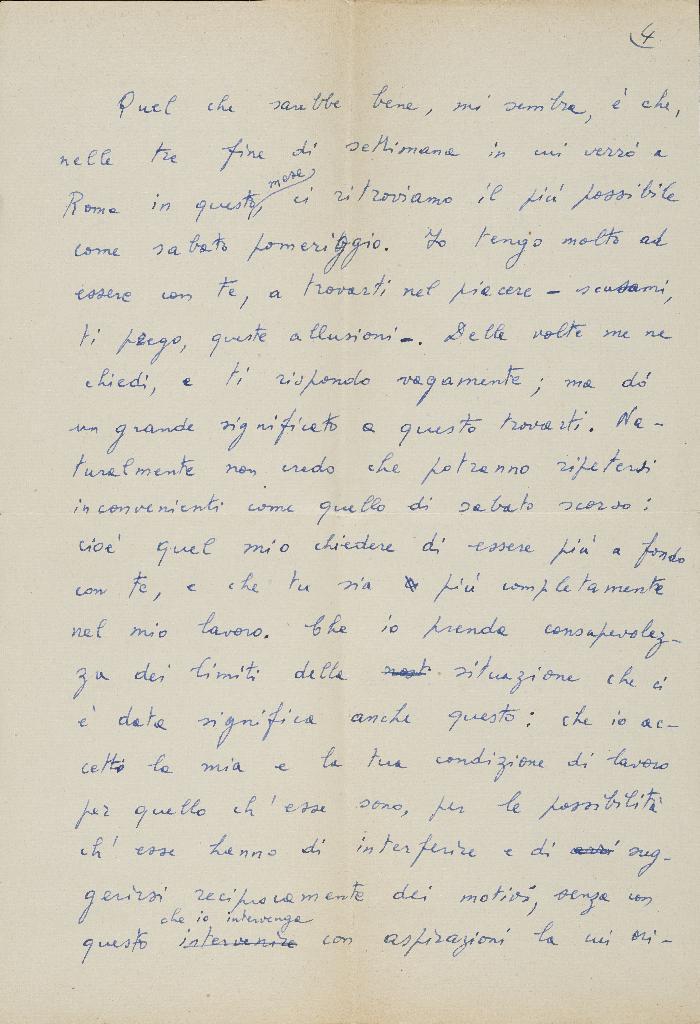 4
Quel che sarebbe bene, mi sembra, è che,
nelle tre fine di settimana in cui verrò a
Roma in questo mese, ci ritroviamo il più possibile
come sabato pomeriggio. Io tengo molto ad
essere con te, a trovarti nel piacere – scusami,
ti prego, queste allusioni –. Delle volte me ne
chiedi, e ti rispondo vagamente; ma dò
un grande significato a questo trovarti. Na-
turalmente non credo che potranno ripetersi
inconvenienti come quello di sabato scorso:
cioè quel mio chiedere di essere più a fondo
con te, e che tu sia più completamente
nel mio lavoro. Che io prenda consapevolez-
za dei limiti della nost situazione che ci
è data significa anche questo: che io ac-
cetto la mia e la tua condizione di lavoro
per quello ch'esse sono, per le possibilità
ch'esse hanno di interferire e di sug-
gerirsi reciprocamente dei motivi, senza con
che io intervenga
questo intervenire con aspirazioni la cui ori-